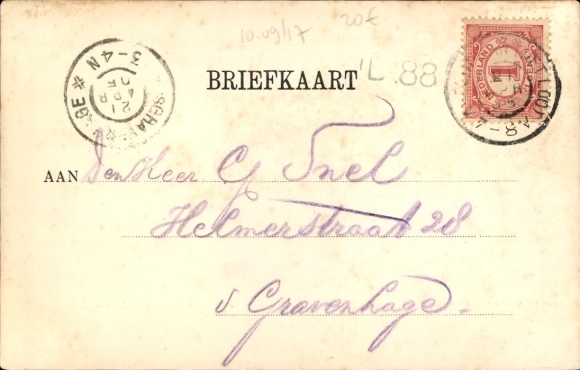 10.09/17 20€
L.88
BRIEFKAART
NEDERLAND
1
3-4N
21
APR
'SGRAVENHAGE
AAN Den Heer G. Snel
Helmerstraat 28
's Gravenhage.